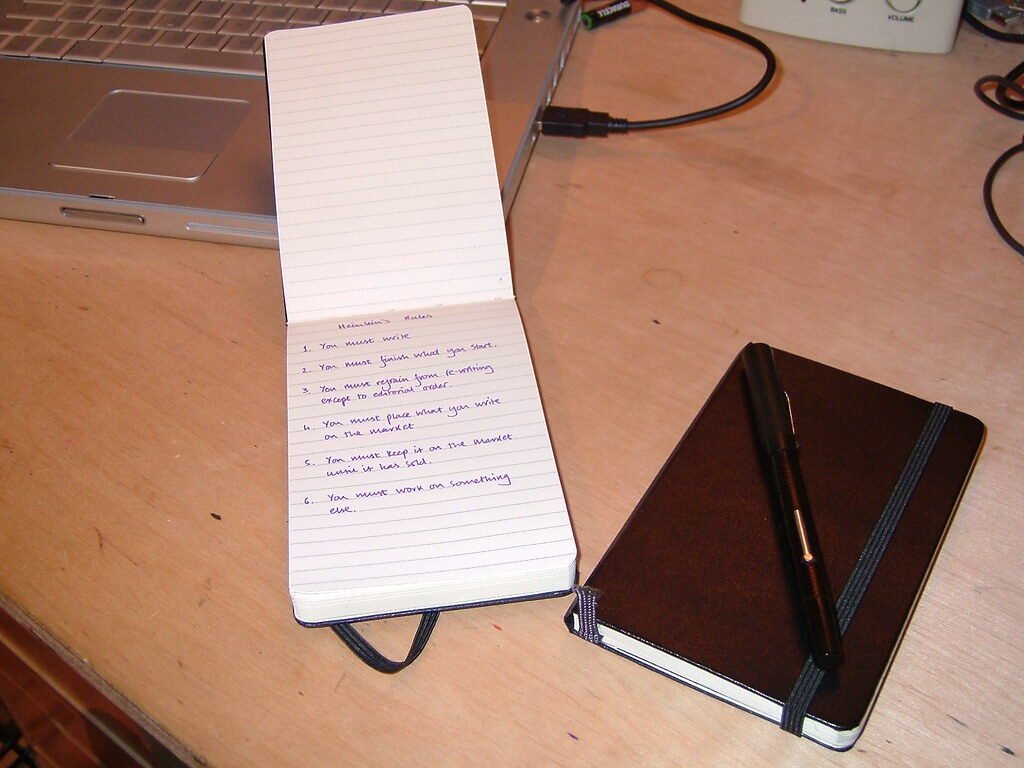 DURACELL
BASS
VOLUME
Heinlein's Rules
1. You must write
2. You must finish what you start.
3. You must refrain from re-writing
except to editorial order.
4. You must place what you write
on the market
5. You must keep it on the market
until it has sold.
6. You must work on something
else.